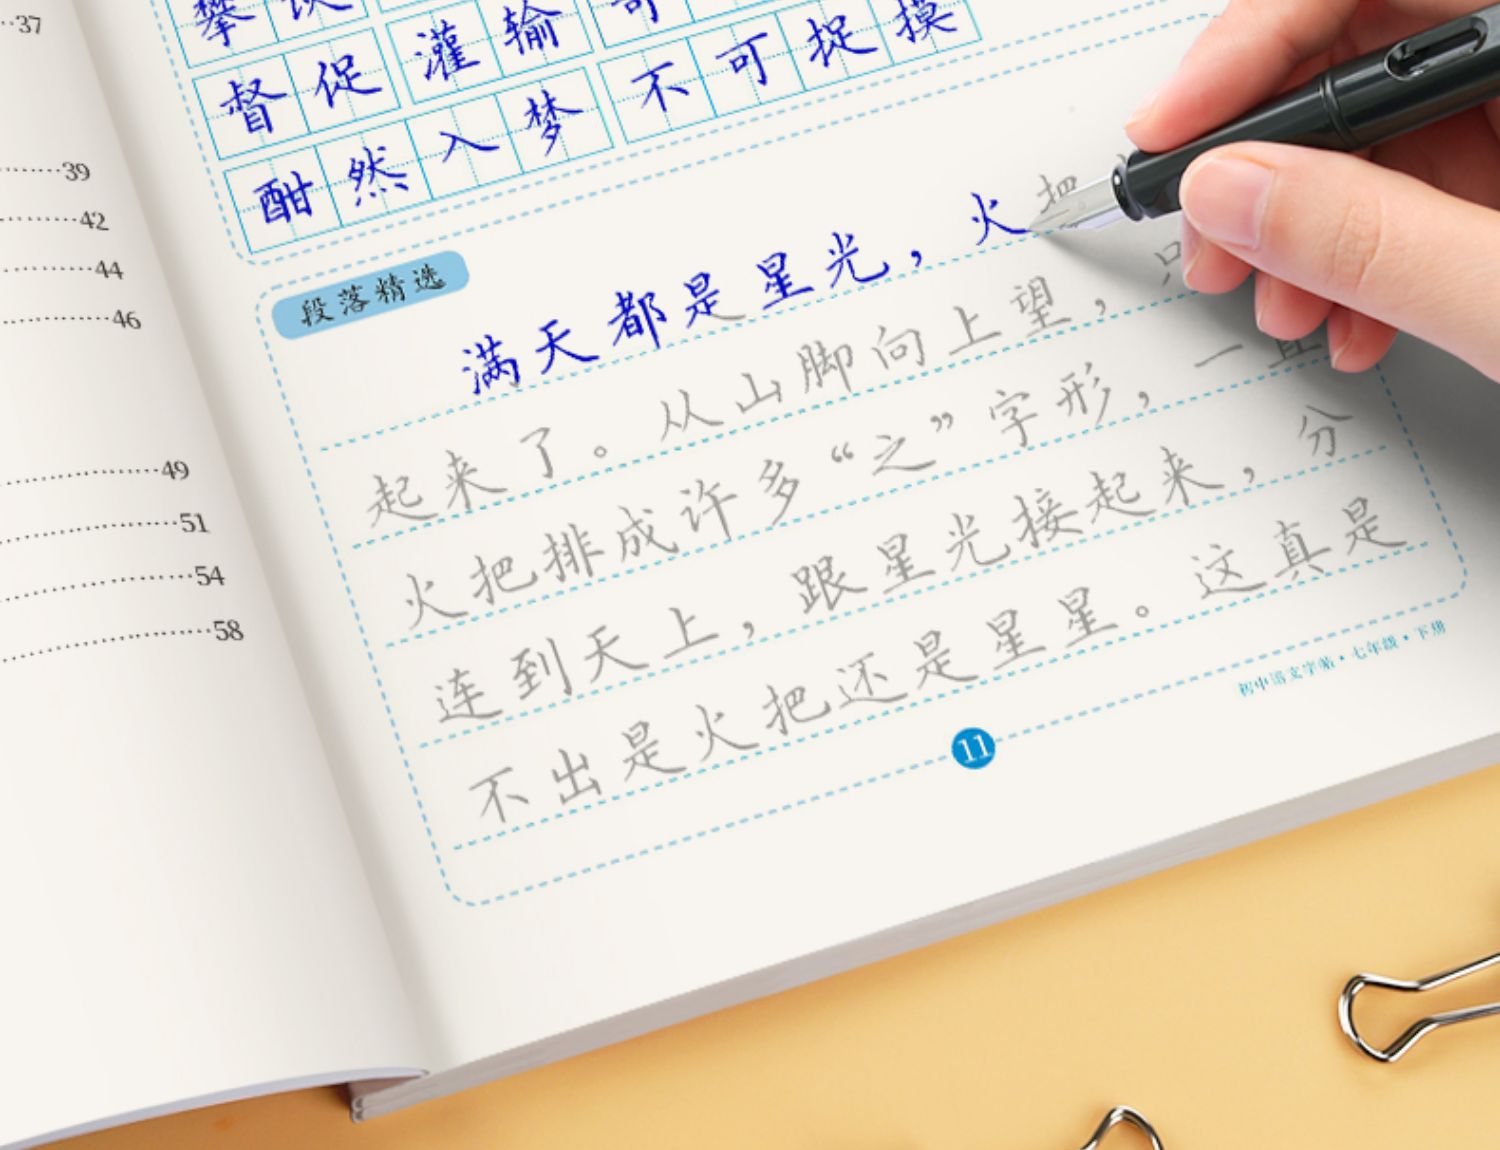 37
39
42
44
46
49
51
54
58
攀
督促 灌输
酣然入梦 不可捉摸
段落精选
满天都是星光，火把
起来了。从山脚向上望，只
火把排成许多“之”字形，一直
连到天上，跟星光接起来，分
不出是火把还是星星。这真是
11
初中语文字帖·七年级·下册